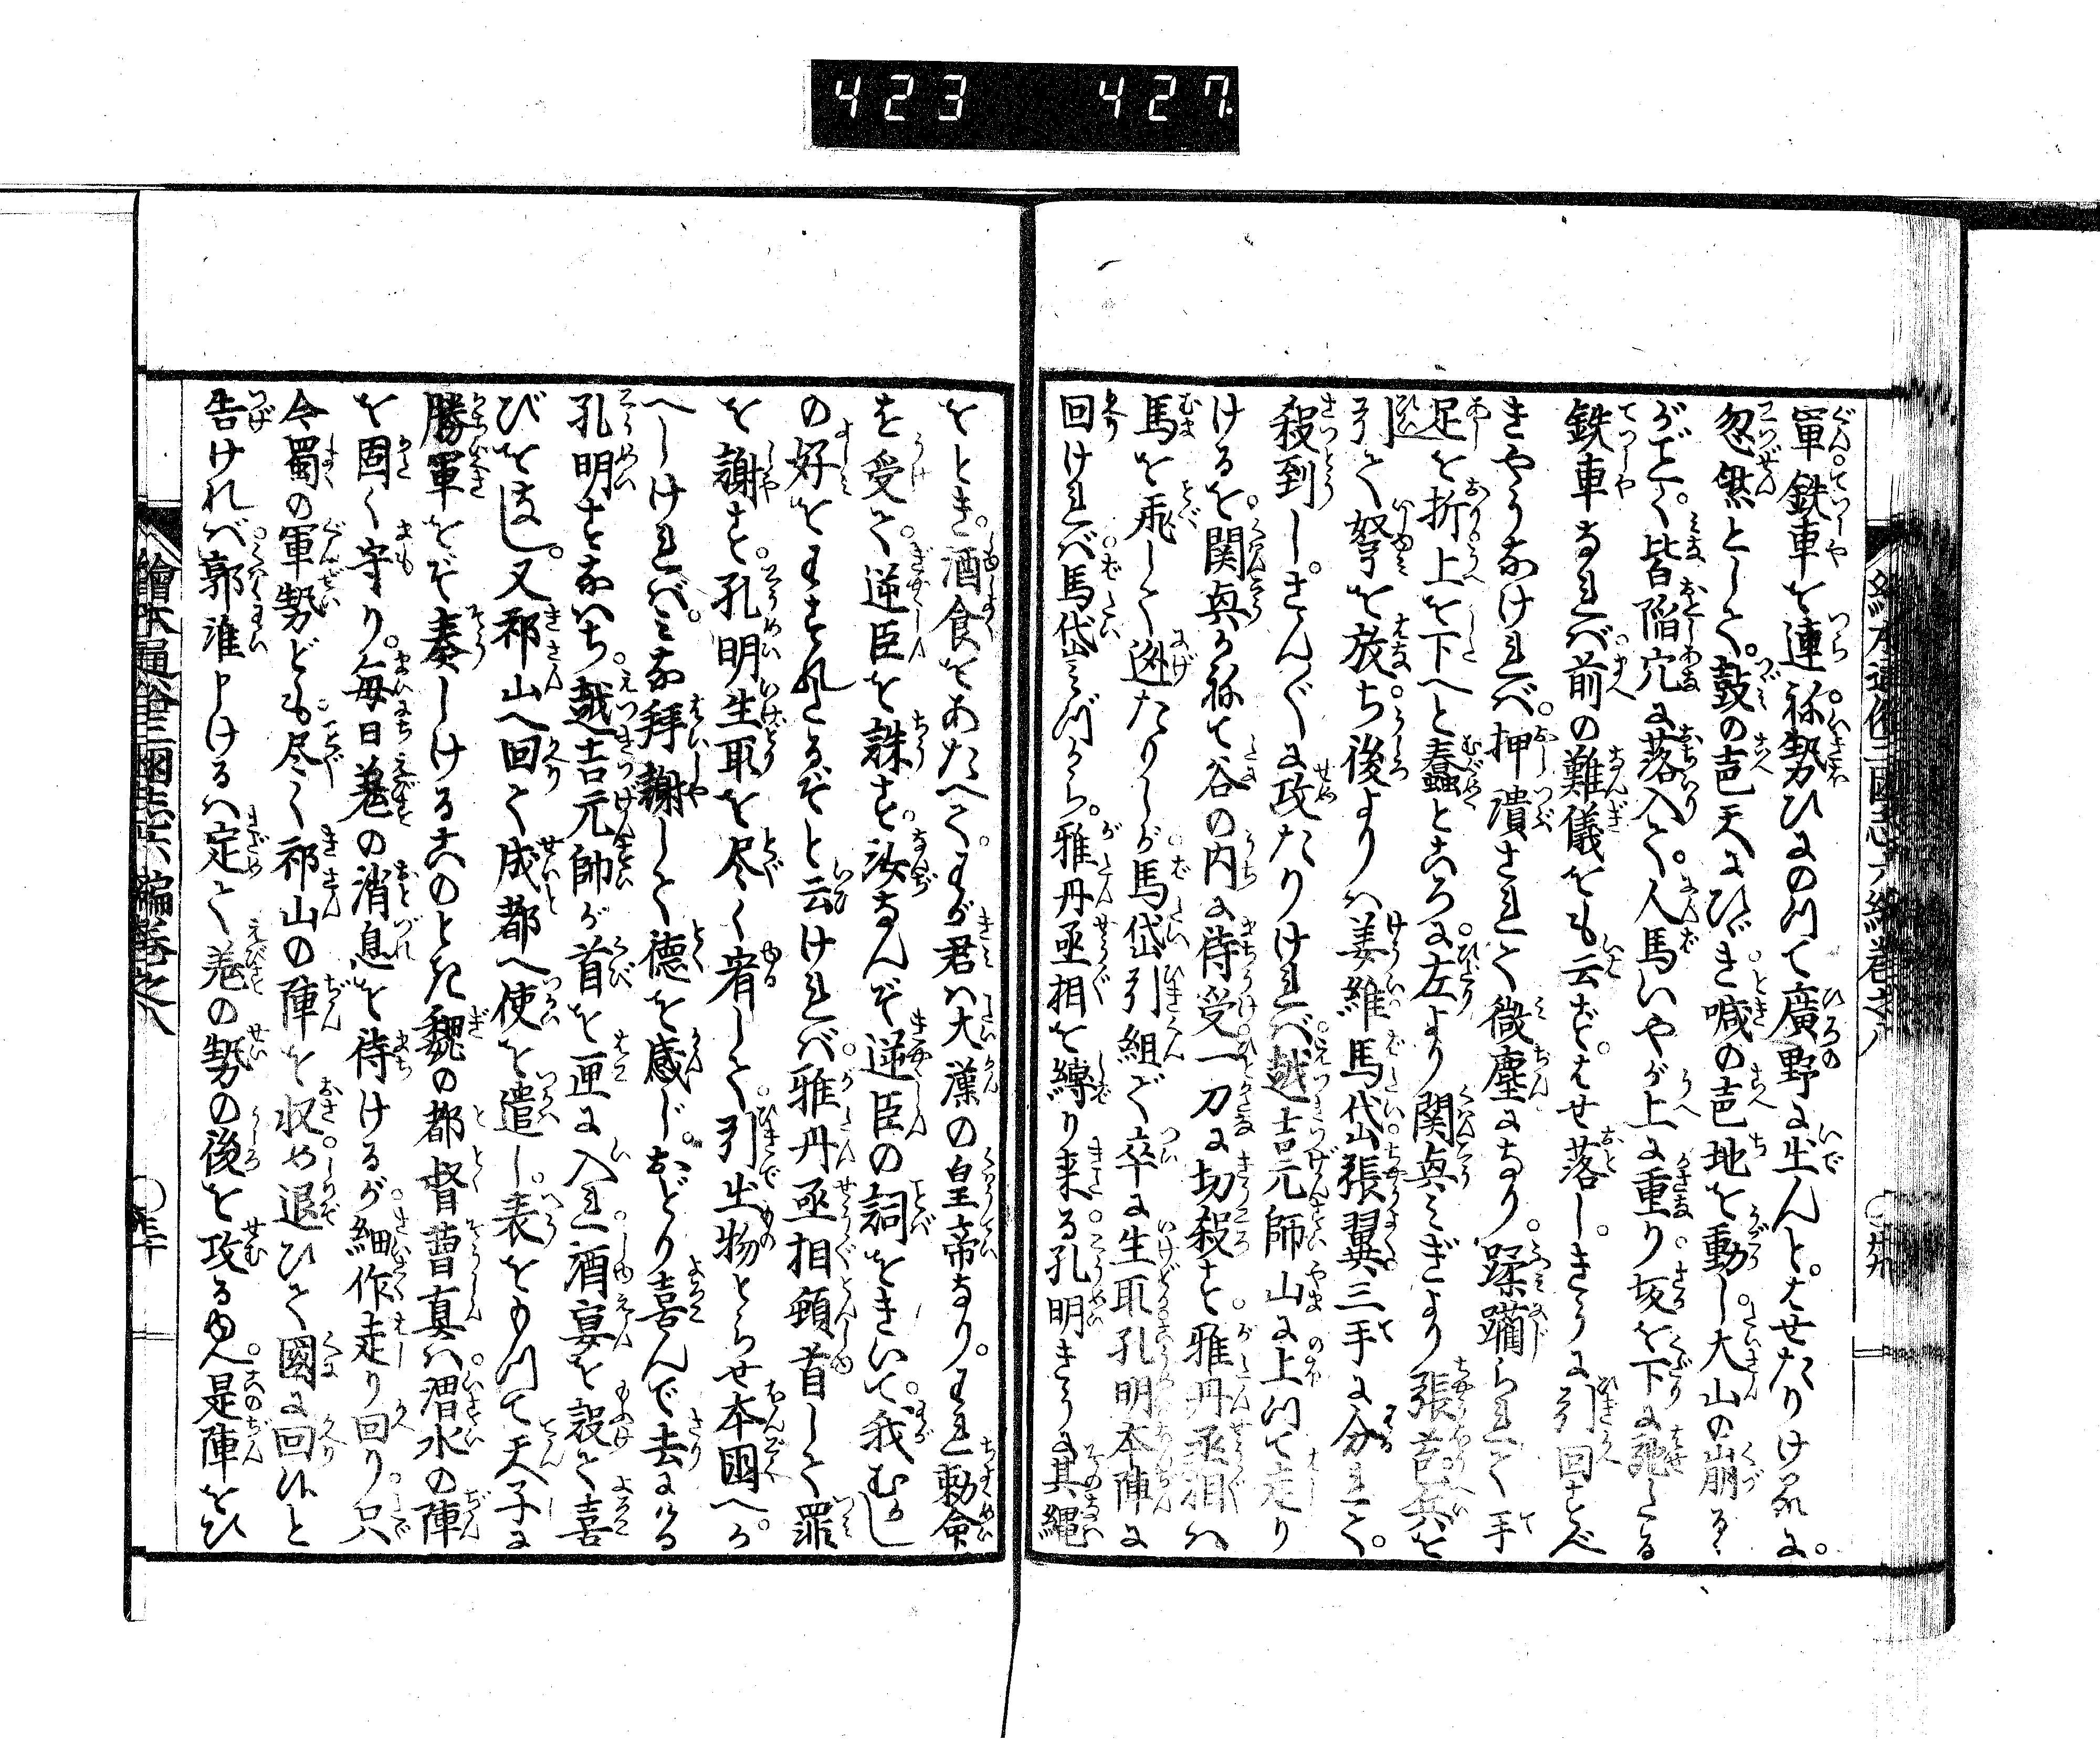 423 427
繪本通俗三國志六編巻之八 〇廿九
軍鉄車を連ね勢ひにのつて廣野に出んとはせたりける所に。
忽然として。鼓の声天にひゞき喊の声地を動し。大山の崩るゝ
がごとく。皆陥穴に落入て。人馬いやが上に重り坂を下に馳たる
鉄車なれば前の難儀をも云ずはせ落し。きうに引回すべ
きやうなければ。押潰されて微塵になり。蹂躪られて手
足を折上を下へと蠢ところに左より関興みぎより張苞兵を
引て弩を放ち後よりハ姜維馬岱張翼三手に分れて。
殺到し。さんざんに攻たりければ越吉元帥山に上つて走り
けるを。関興かねて谷の内に待受一刀に切殺す雅丹丞相ハ
馬を飛して逃たりしが馬岱引組で卒に生取孔明本陣に
回ければ馬岱みづから。雅丹丞相を縛り来る孔明きうに其縄
をとき。酒食をあたへて。わが君ハ大漢の皇帝なり。われ勅命
を受て。逆臣を誅す。汝なんぞ逆臣の詞をきいて。我むかし
の好をわすれたるぞと云ければ雅丹丞相頓首して罪
を謝す。孔明生取を尽く宥して引出物とらせ本国へか
へしければみな拝謝して徳を感じ。おどり喜んで去にける
孔明すなハち越吉元帥が首を匣に入れ酒宴を設て喜
びをなし。又祁山へ回て成都へ使を遣し。表をもつて天子に
勝軍をぞ奏しけるこのとき魏の都督曹真ハ渭水の陣
を固く守り。毎日羗の消息を待けるが細作走り回り。只
今蜀の軍勢ども尽く祁山の陣を収め退ひて國に回ルと
告ければ郭淮申けるハ定て羗の勢の後を攻るゆへ。是陣をひ
繪本通俗三國志六編巻之八 〇三十